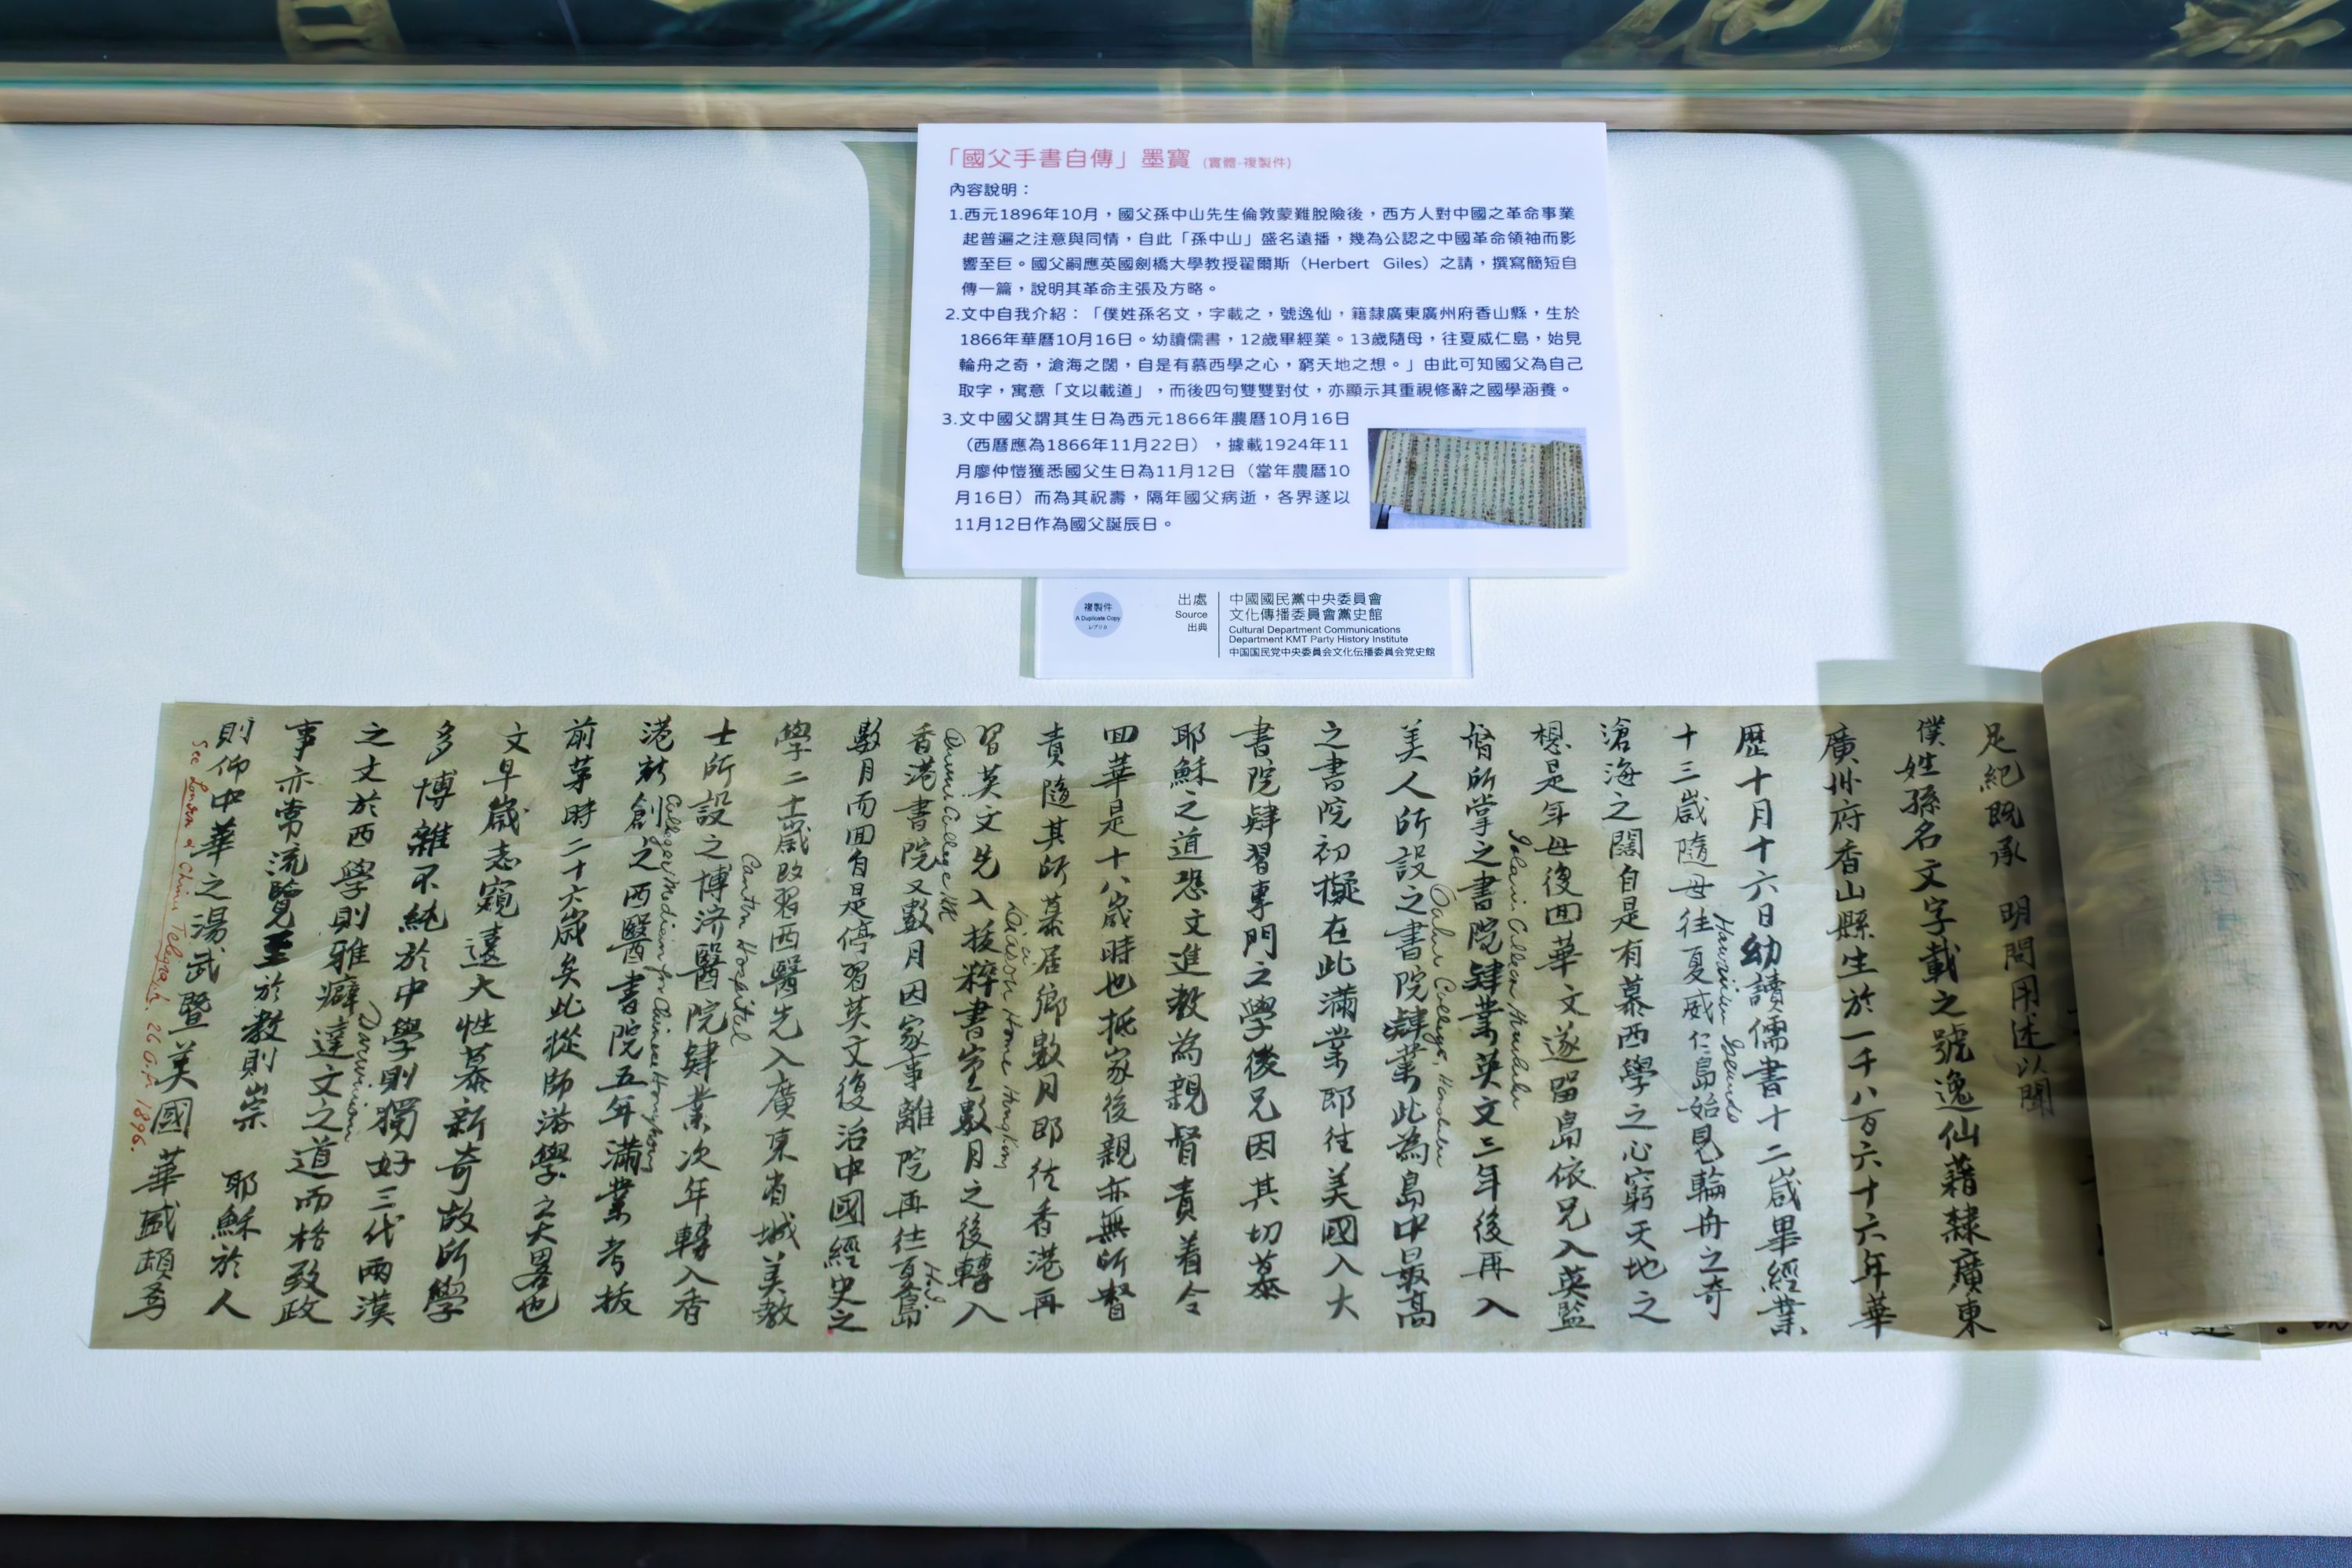 「國父手書自傳」墨寶 (實體-複製件)
內容說明：
1.西元1896年10月，國父孫中山先生倫敦蒙難脫險後，西方人對中國之革命事業
起普遍之注意與同情，自此「孫中山」盛名遠播，幾為公認之中國革命領袖而影
響至巨。國父嗣應英國劍橋大學教授翟爾斯（Herbert Giles）之請，撰寫簡短自
傳一篇，說明其革命主張及方略。
2.文中自我介紹：「僕姓孫名文，字載之，號逸仙，籍隸廣東廣州府香山縣，生於
1866年華曆10月16日。幼讀儒書，12歲畢經業。13歲隨母，往夏威仁島，始見
輪舟之奇，滄海之闊，自是有慕西學之心，窮天地之想。」由此可知國父為自己
取字，寓意「文以載道」，而後四句雙雙對仗，亦顯示其重視修辭之國學涵養。
3.文中國父謂其生日為西元1866年農曆10月16日
（西曆應為1866年11月22日），據載1924年11
月廖仲愷獲悉國父生日為11月12日（當年農曆10
月16日）而為其祝壽，隔年國父病逝，各界遂以
11月12日作為國父誕辰日。
複製件
A Duplicate Copy
レプリカ
出處
Source
出典
中國國民黨中央委員會
文化傳播委員會黨史館
Cultural Department Communications
Department KMT Party History Institute
中国国民党中央委員会文化伝播委員会党史館
足紀既承 明問用述以聞
僕姓孫名文字載之號逸仙藉隸廣東
廣州府香山縣生於一千八百六十六年華
歷十月十六日幼讀儒書十二歲畢經業
Hawaiian Islands
十三歲隨母往夏威仁島始見輪舟之奇
滄海之闊自是有慕西學之心窮天地之
想是年母復回華文遂留島依兄入英監
Iolani College Honolulu
督所掌之書院肄業英文三年後再入
Oahu College, Honolulu
美人所設之書院肄業此為島中最高
之書院初擬在此滿業即往美國入大
書院肆習專門之學後兄因其切慕
耶穌之道恐文進教為親督責着令
回華是十八歲時也抵家後親亦無所督
責隨其所慕居鄉數月即往香港再
Home Hongkong
習英文先入拔粹書室數月之後轉入
Queen's College HK
香港書院又數月因家事離院再往夏島
數月而回自是停習英文復治中國經史之
學二十一歲改習西醫先入廣東省城美教
Canton Hospital
士所設之博济醫院肄業次年轉入香
College of Medicine for Chinese Hongkong
港新創之西醫書院五年滿業考拔
前茅時二十六歲矣此從師游學之大畧也
文早歲志窺遠大性慕新奇故所學
多博雜不純於中學則獨好三代兩漢
Darwinian
之文於西學則雅癖達文之道而格致政
事亦常流覽至於教則崇 耶穌於人
則仰中華之湯武暨美國華盛頓焉
See London & China Telegraph. 26 Oct 1896.